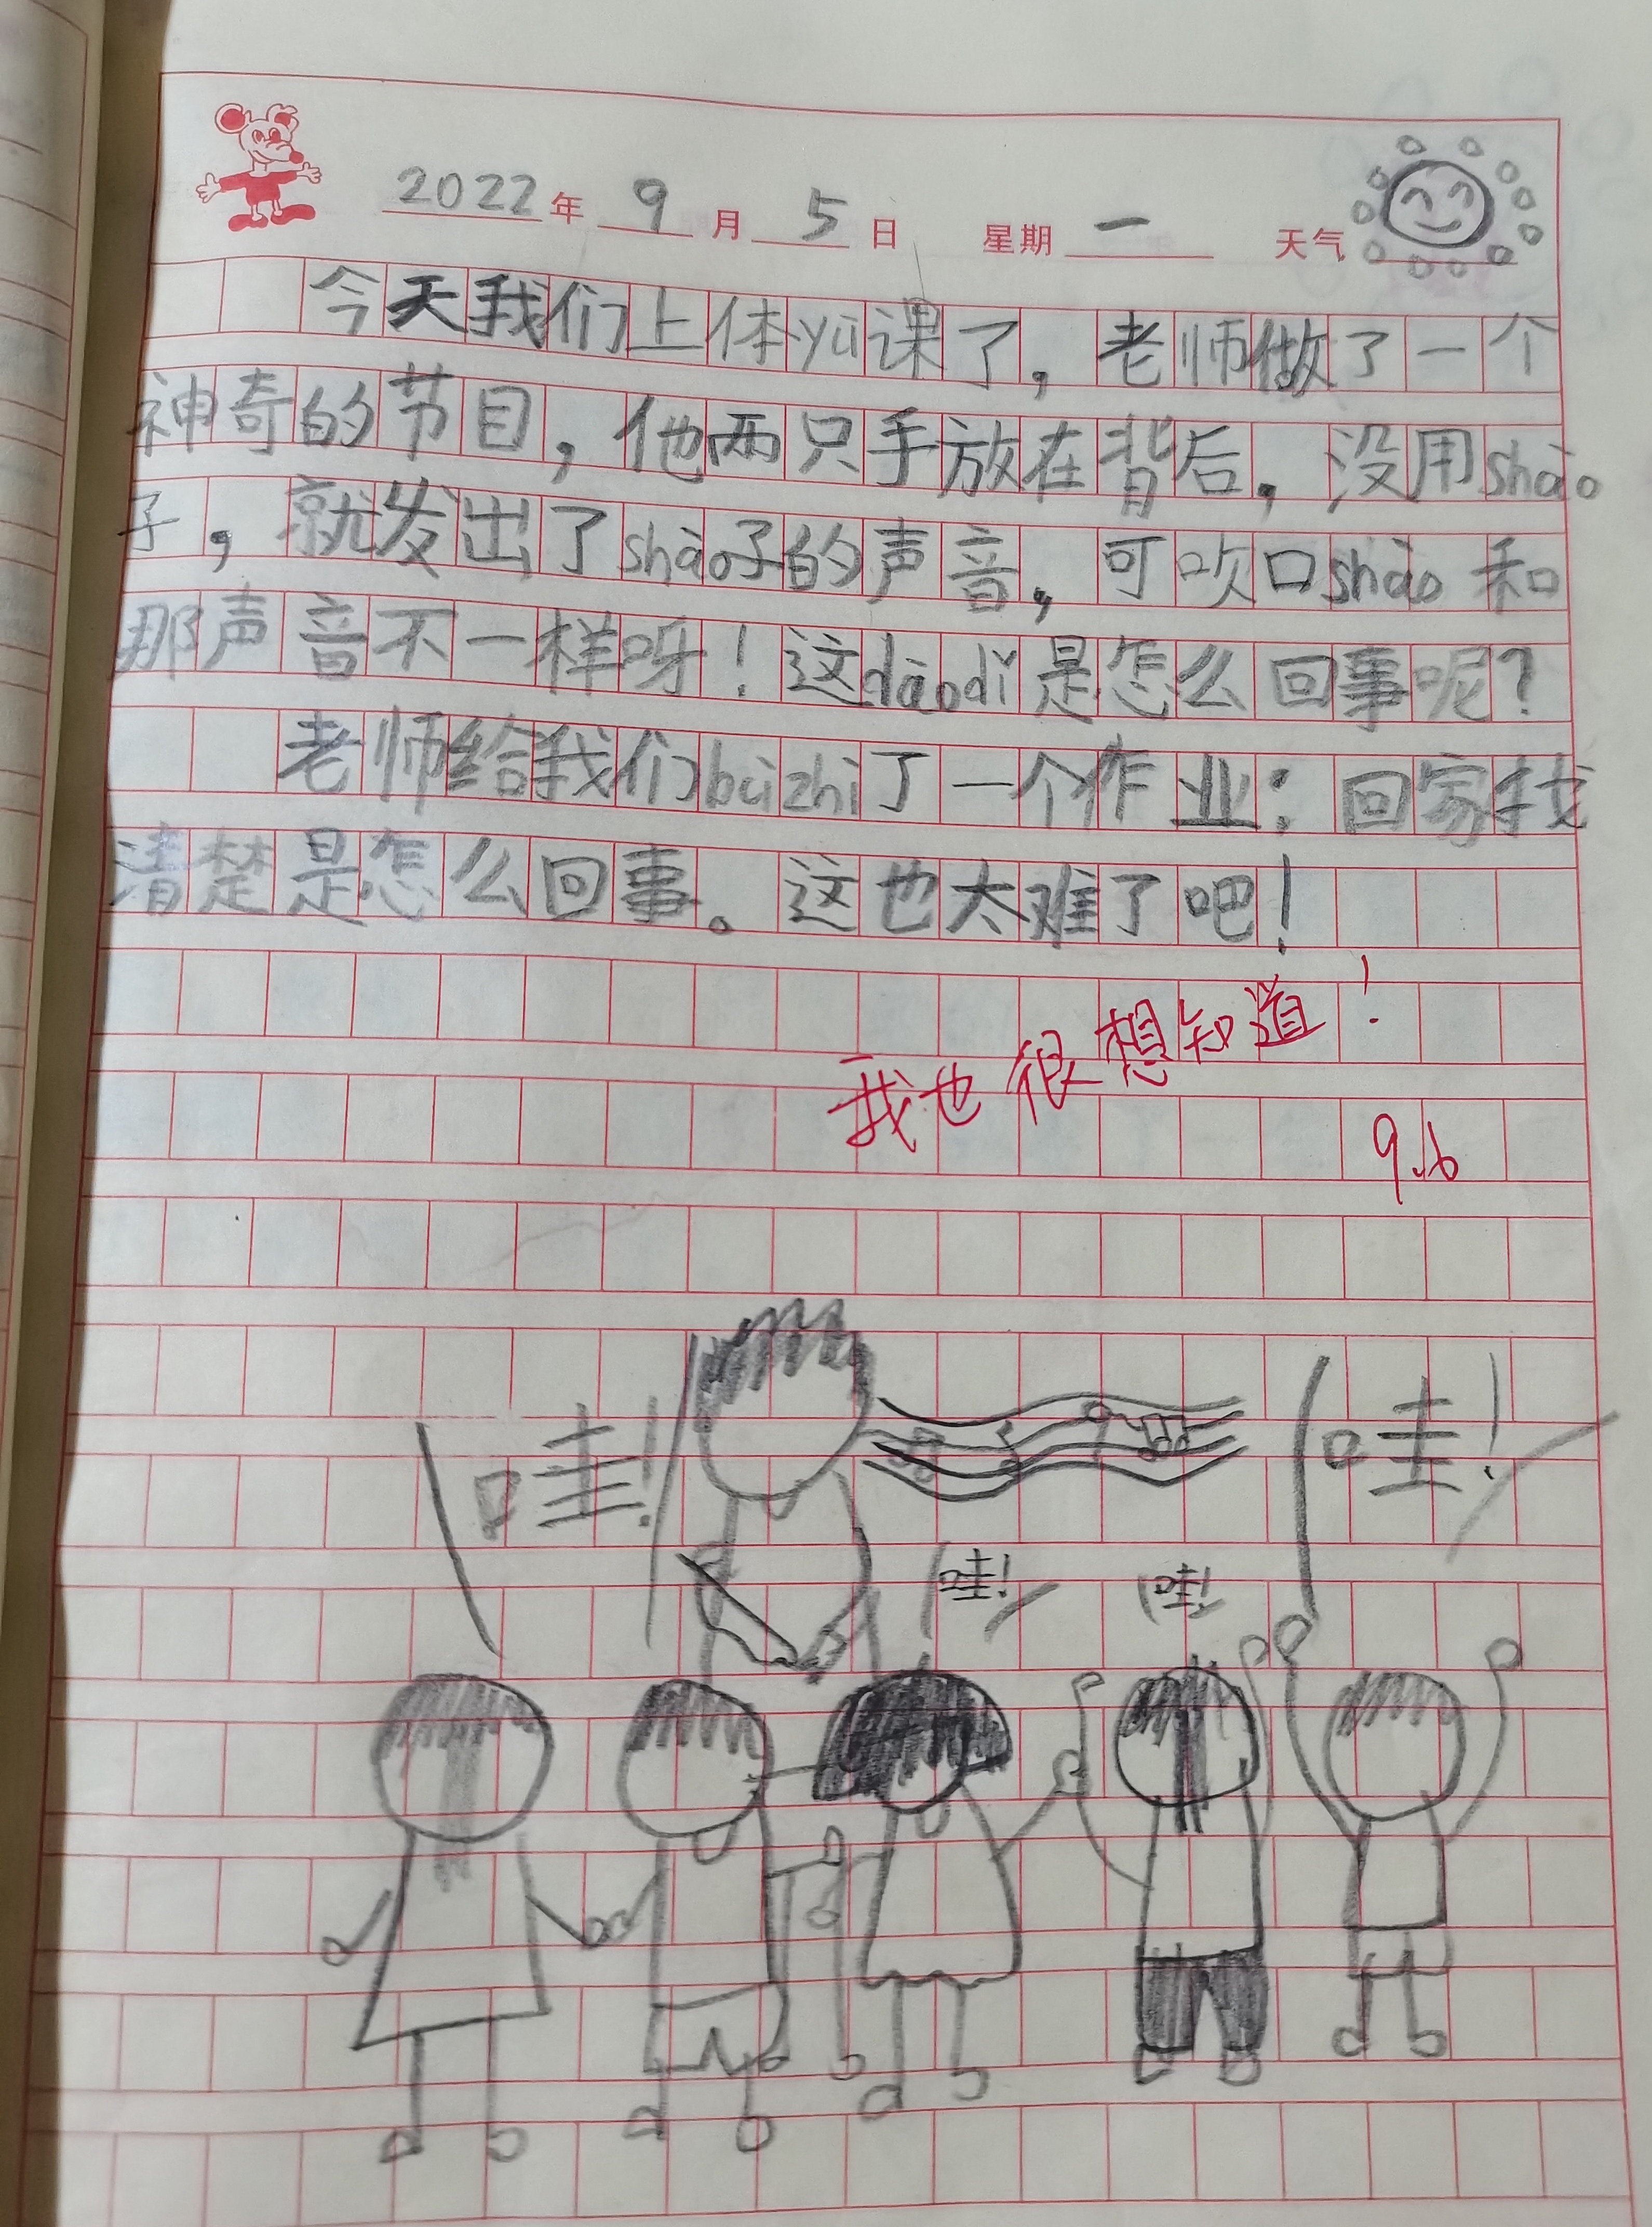 2022年9月5日 星期一 天气
今天我们上体yù课了，老师做了一个
神奇的节目，他两只手放在背后，没用shào
子，就发出了shào子的声音，可吹口shào和
那声音不一样呀！这dàodǐ是怎么回事呢？
老师给我们bùzhì了一个作业：回家找
清楚是怎么回事。这也太难了吧！
我也很想知道！
9.6
哇！
哇！
哇！
哇！